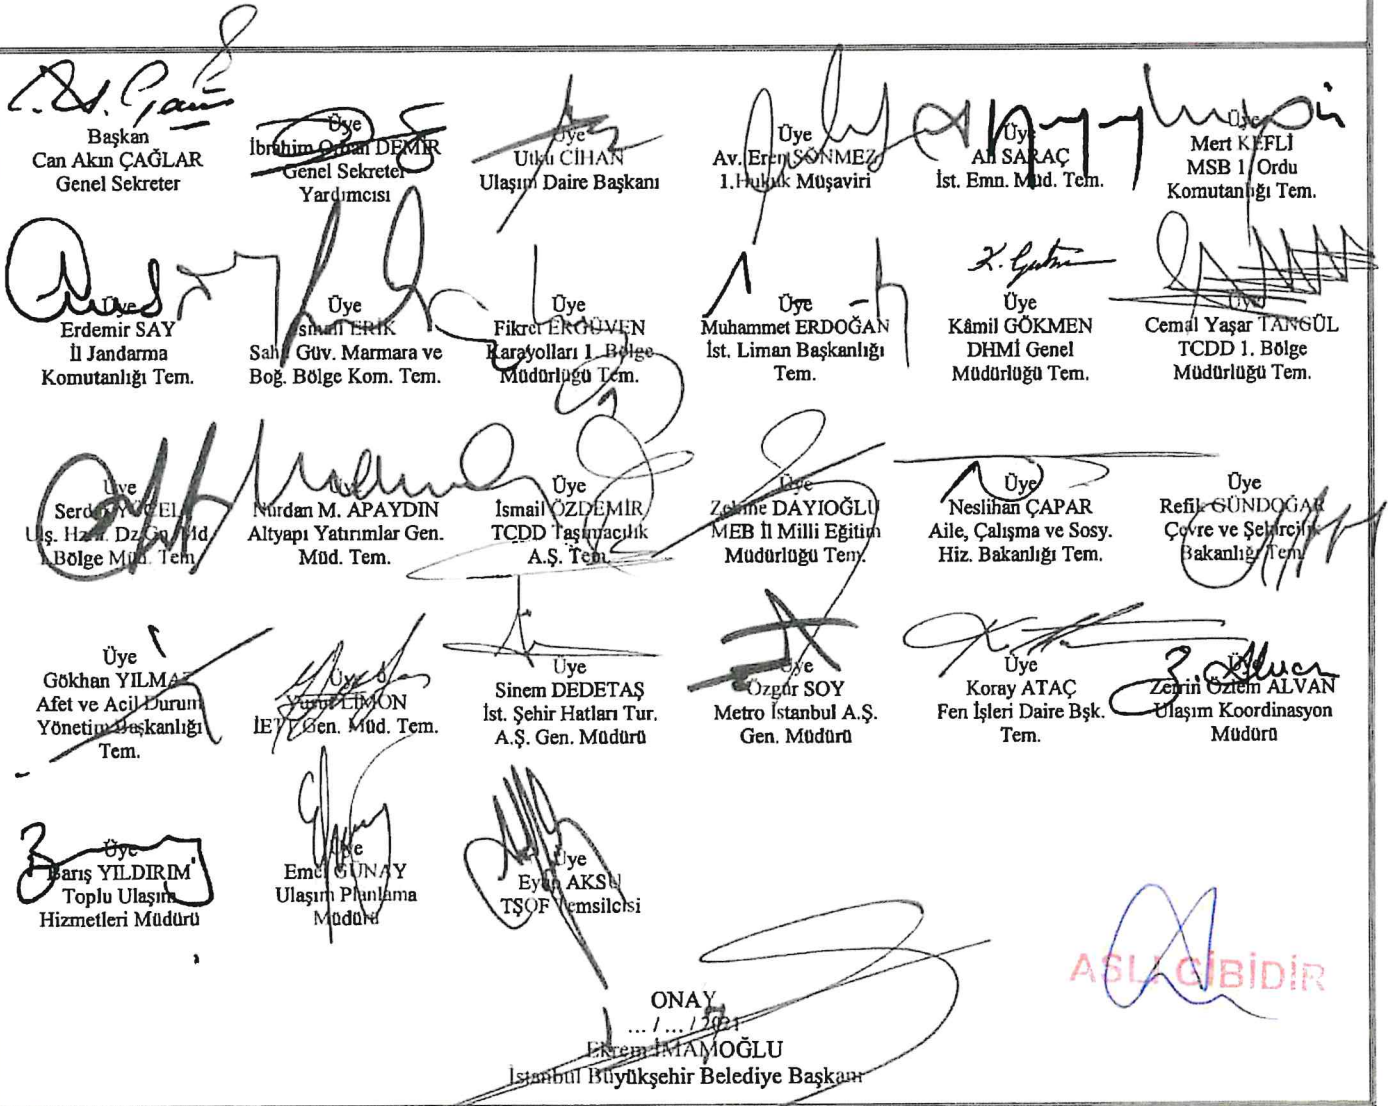 Başkan
Can Akın ÇAĞLAR
Genel Sekreter
Üye
İbrahim Orhan DEMİR
Genel Sekreter
Yardımcısı
Üye
Utku CİHAN
Ulaşım Daire Başkanı
Üye
Av. Eren SÖNMEZ
1.Hukuk Müşaviri
Üye
Ali SARAÇ
İst. Emn. Müd. Tem.
Üye
Mert KEFLİ
MSB 1. Ordu
Komutanlığı Tem.
Üye
Erdemir SAY
İl Jandarma
Komutanlığı Tem.
Üye
İsmail ERİK
Sahil Güv. Marmara ve
Boğ. Bölge Kom. Tem.
Üye
Fikret ERGÜVEN
Karayolları 1. Bölge
Müdürlüğü Tem.
Üye
Muhammet ERDOĞAN
İst. Liman Başkanlığı
Tem.
K. Gökmen
Üye
Kâmil GÖKMEN
DHMİ Genel
Müdürlüğü Tem.
Üye
Cemal Yaşar TANGÜL
TCDD 1. Bölge
Müdürlüğü Tem.
Üye
Serdar YÜCEL
Ulş. Hzm. Dz. Gn. Md.
Bölge Müd. Tem.
Üye
Nurdan M. APAYDIN
Altyapı Yatırımlar Gen.
Müd. Tem.
Üye
İsmail ÖZDEMİR
TCDD Taşımacılık
A.Ş. Tem.
Üye
DAYIOĞLU
MEB İl Milli Eğitim
Müdürlüğü Tem.
Üye
Neslihan ÇAPAR
Aile, Çalışma ve Sosy.
Hiz. Bakanlığı Tem.
Üye
Refik GÜNDOĞAN
Çevre ve Şehircilik
Bakanlığı Tem.
Üye
Gökhan YILMAZ
Afet ve Acil Durum
Yönetim Başkanlığı
Tem.
Üye
Yusuf LİMON
İETT Gen. Müd. Tem.
Üye
Sinem DEDETAŞ
İst. Şehir Hatları Tur.
A.Ş. Gen. Müdürü
Üye
Özgür SOY
Metro İstanbul A.Ş.
Gen. Müdürü
Üye
Koray ATAÇ
Fen İşleri Daire Bşk.
Tem.
Üye
Zerrin Özlem ALVAN
Ulaşım Koordinasyon
Müdürü
Üye
Barış YILDIRIM
Toplu Ulaşım
Hizmetleri Müdürü
Üye
Emel GÜNAY
Ulaşım Planlama
Müdürü
Üye
Eyüp AKSU
TŞOF Temsilcisi
ASLI GİBİDİR
ONAY
... / ... / 2021
Ekrem İMAMOĞLU
İstanbul Büyükşehir Belediye Başkanı